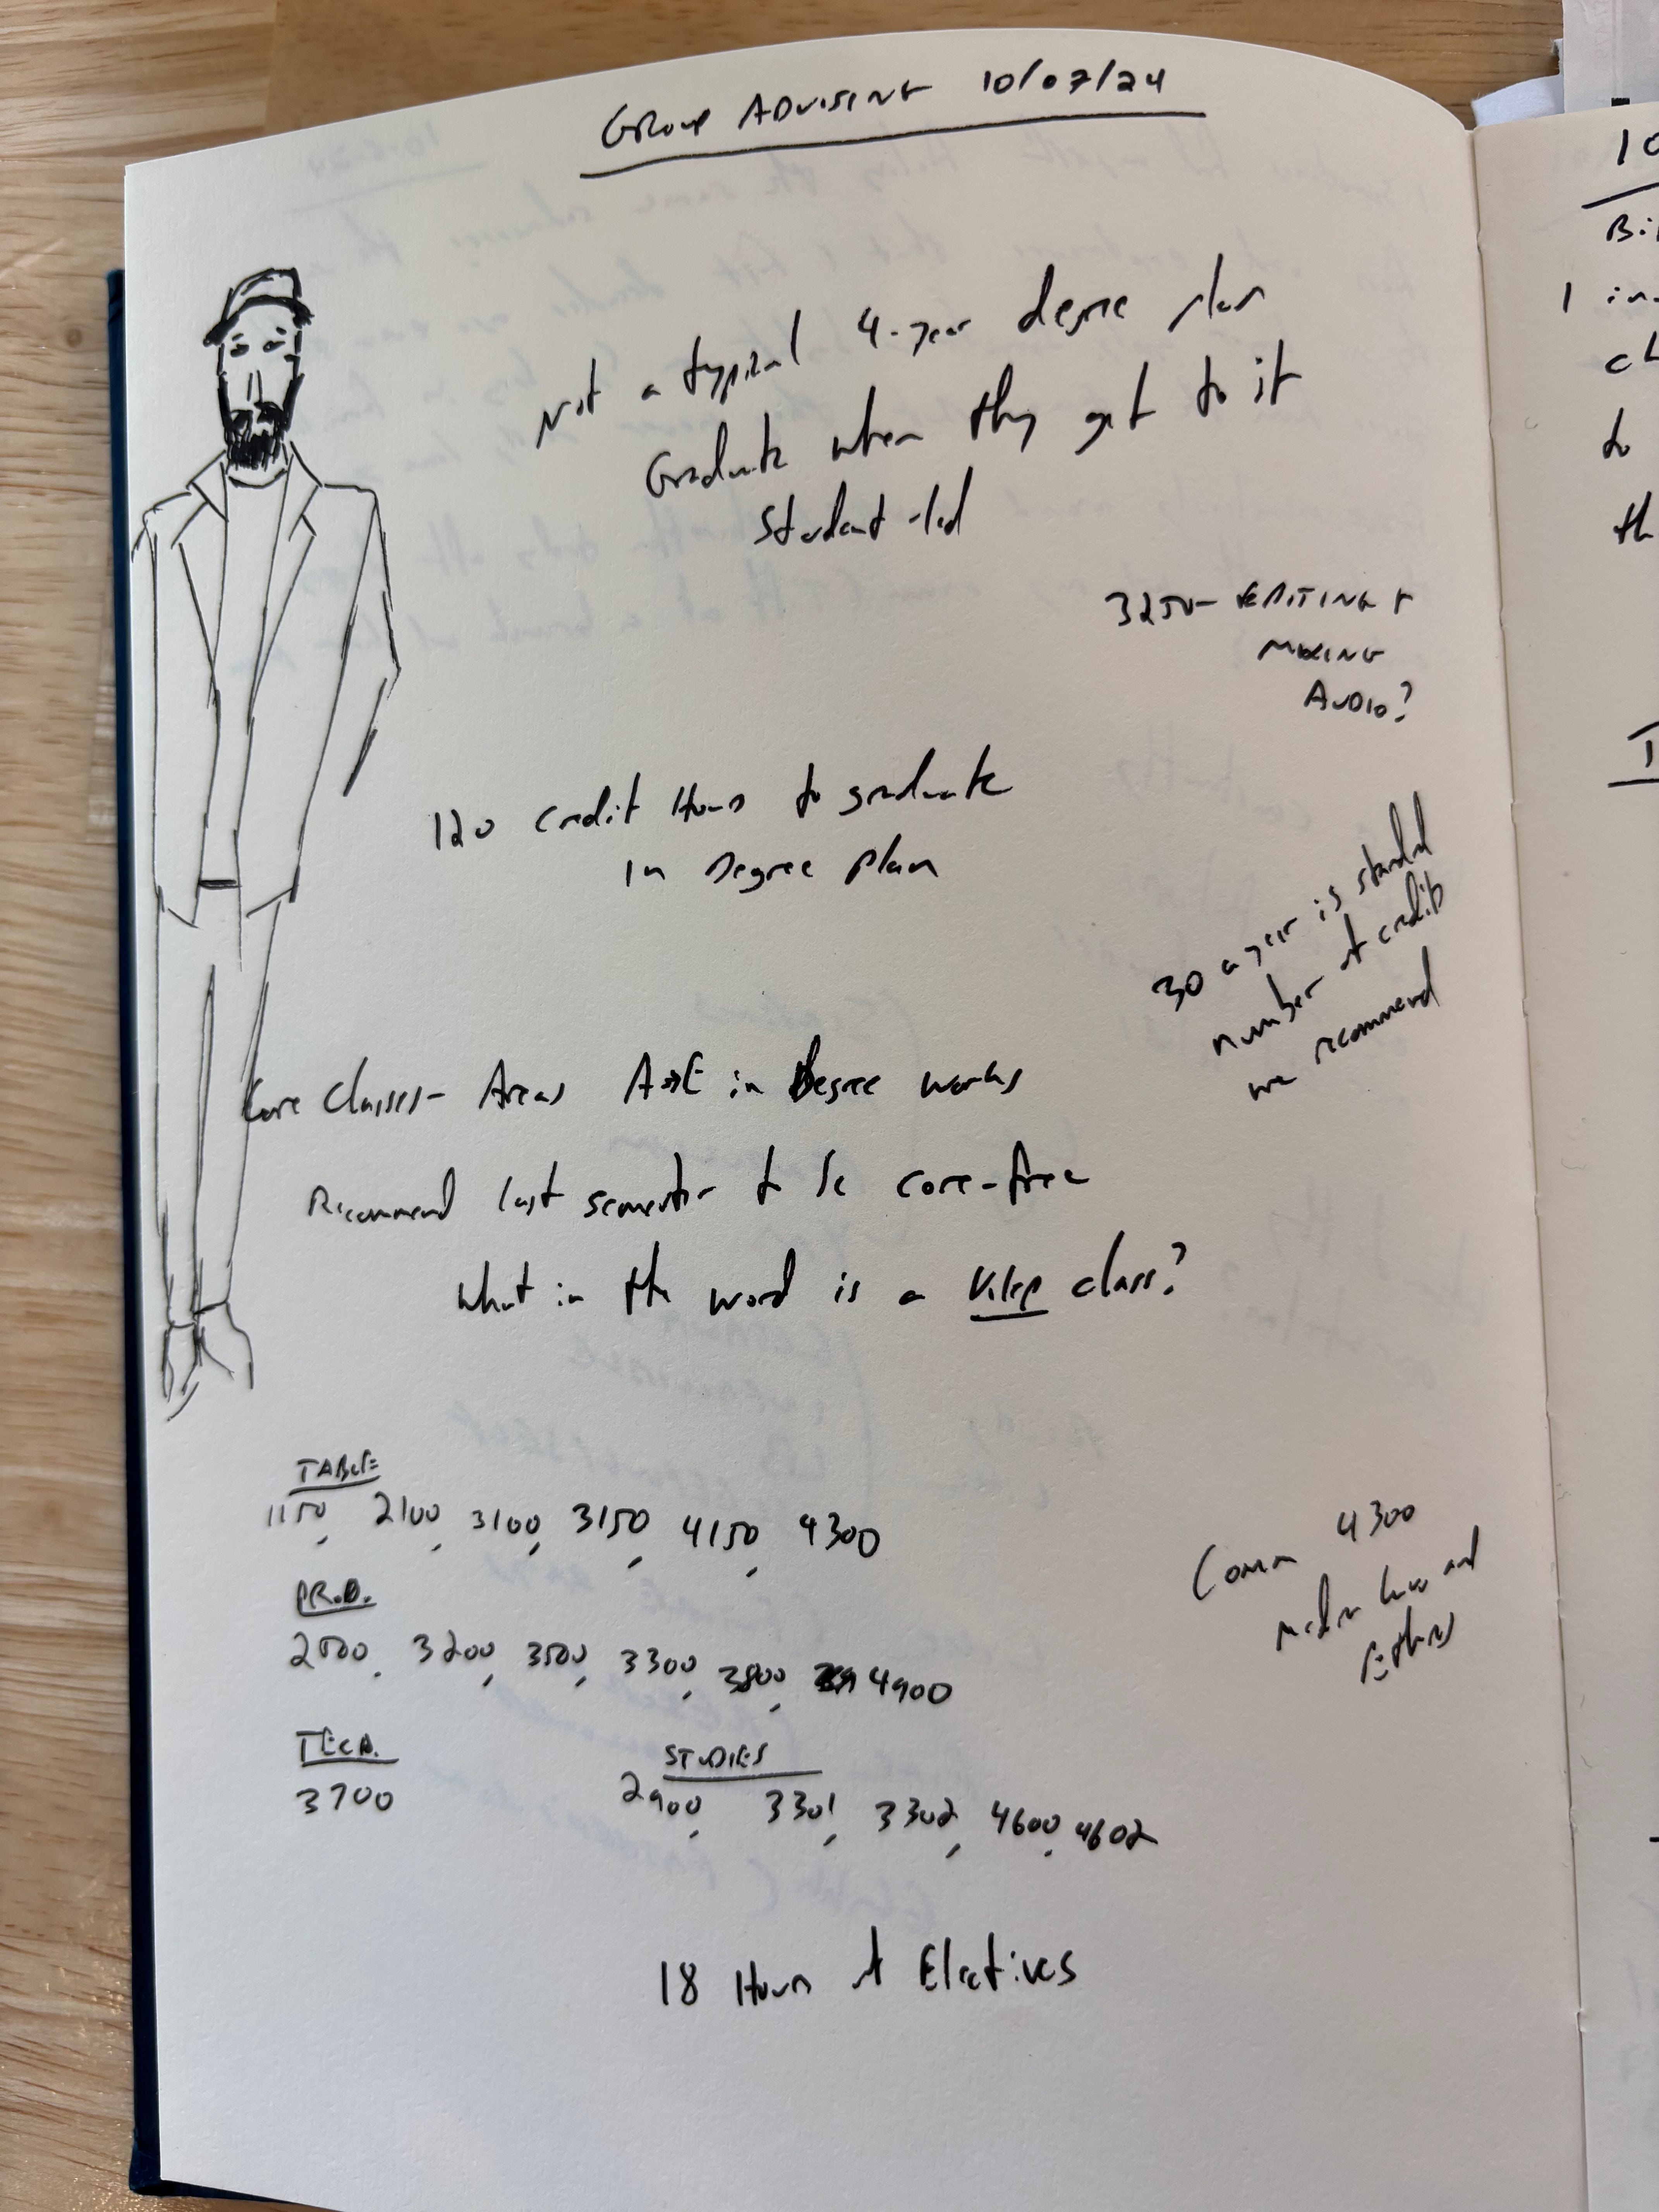 Group Advising 10/07/24
Not a typical 4-year degree plan
Graduate when they get to it
Student-led
3250- EDITING +
MIXING
AUDIO?
120 credit Hours to graduate
in Degree plan
30 a year is standard
number of credits
we recommend
Core Classes- Areas A→E in Degree works
Recommend last semester to be core-free
What in the word is a class?
TABLE
1150, 2100, 3100, 3150, 4150, 4300
Comm 4300
Media Law and
Ethics
PROD.
2500, 3200, 3500, 3300, 3800, 4900
TECH.
3700
STUDIES
2900, 3301, 3302, 4600, 4602
18 Hours of Electives
10
Bi
I in
ch
to
th